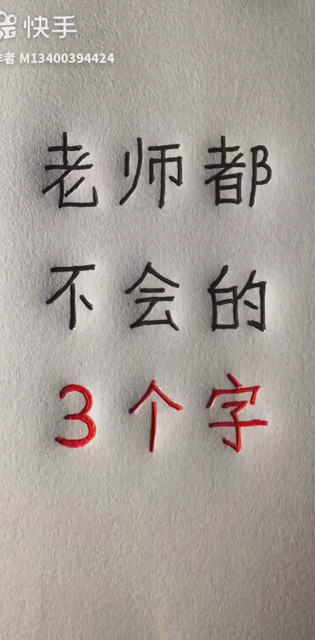 快手
者 M13400394424
老师都
不会的
3个字